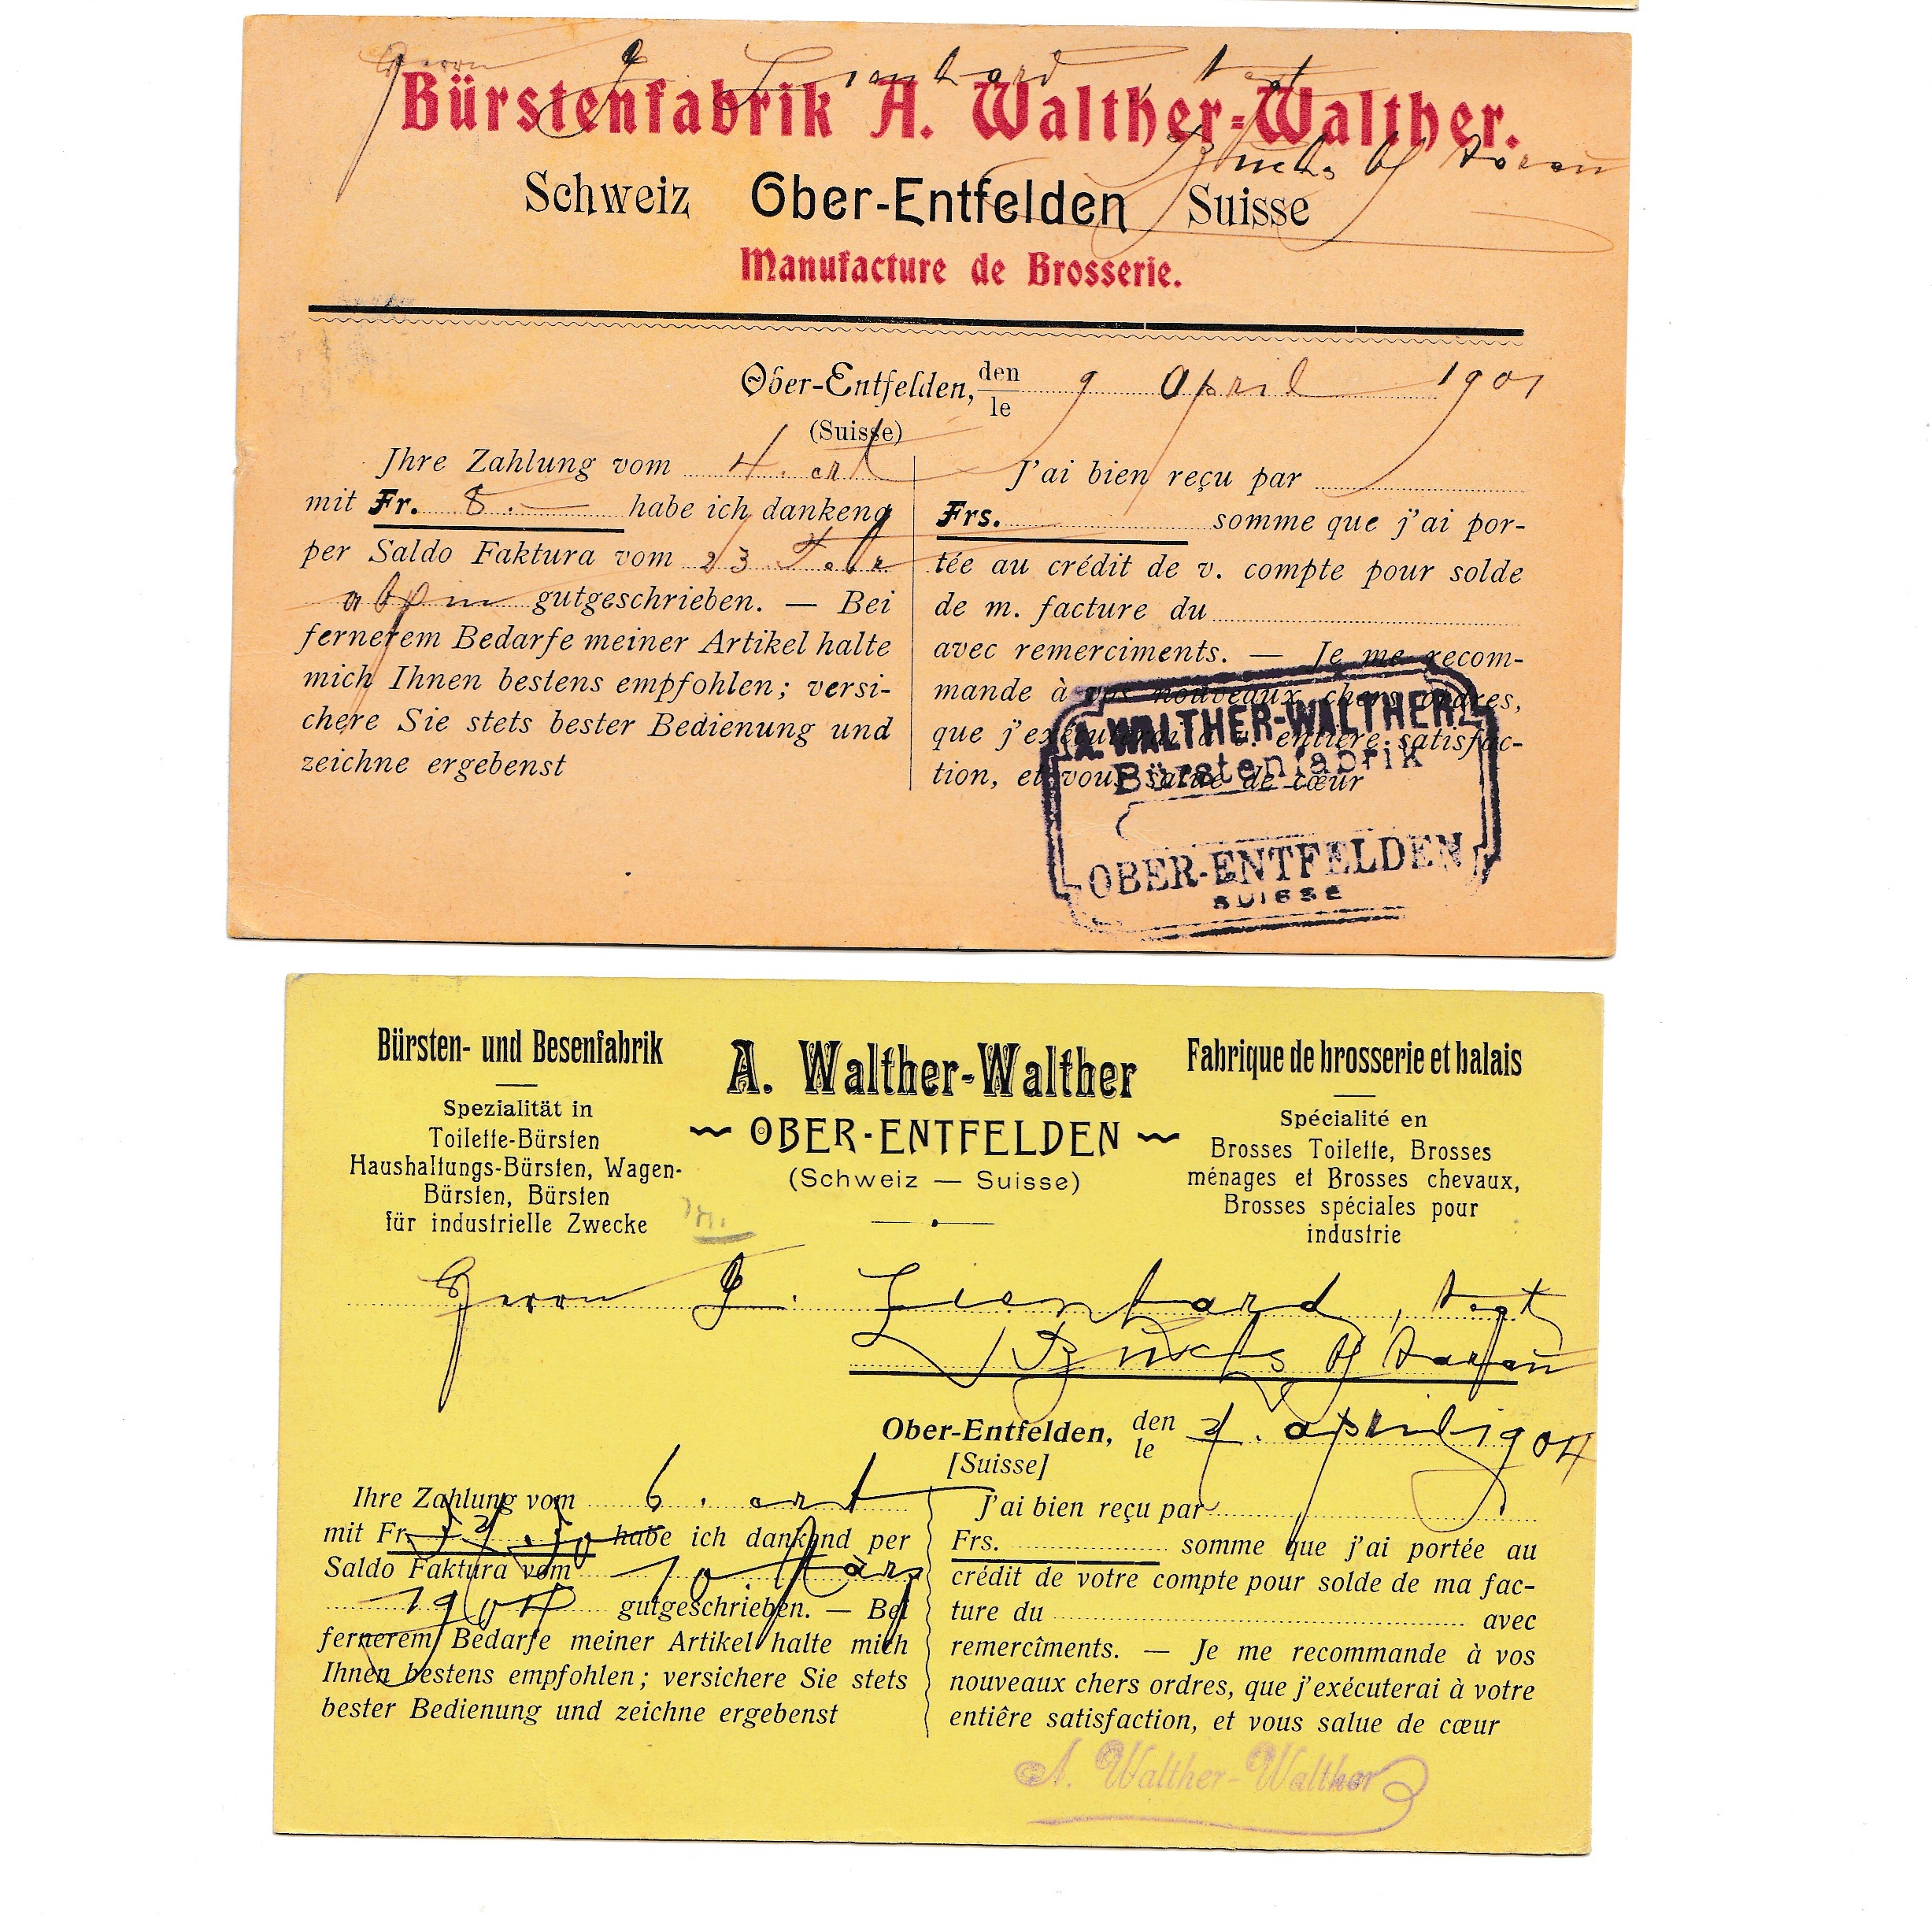 Herrn G Lienhard
Bürstenfabrik A. Walther-Walther.
Buchs b/ Aarau
Schweiz Ober-Entfelden Suisse
Manufacture de Brosserie.
Ober-Entfelden, den le 9 April 1901
(Suisse)
Ihre Zahlung vom 4. crt
mit Fr. 8.— habe ich dankend
per Saldo Faktura vom 23 Febr
gutgeschrieben. — Bei
fernerem Bedarfe meiner Artikel halte
mich Ihnen bestens empfohlen; versi-
chere Sie stets bester Bedienung und
zeichne ergebenst
J'ai bien reçu par
Frs. somme que j'ai por-
tée au crédit de v. compte pour solde
de m. facture du
avec remerciments. — Je me recom-
mande à vos nouveaux chers ordres,
que j'exécuterai à v. entière satisfac-
tion, et vous salue de cœur
A. WALTHER-WALTHER
Bürstenfabrik
OBER-ENTFELDEN
SUISSE
Bürsten- und Besenfabrik
Spezialität in
Toilette-Bürsten
Haushaltungs-Bürsten, Wagen-
Bürsten, Bürsten
für industrielle Zwecke
A. Walther-Walther
OBER-ENTFELDEN
(Schweiz — Suisse)
Fabrique de brosserie et balais
Spécialité en
Brosses Toilette, Brosses
ménages et Brosses chevaux,
Brosses spéciales pour
industrie
Herrn G. Lienhard,
Buchs b/ Aarau
Ober-Entfelden, den le 7. april 1904
[Suisse]
Ihre Zahlung vom 6. crt
mit Fr. habe ich dankend per
Saldo Faktura vom 10 März
1904 gutgeschrieben. — Bei
fernerem Bedarfe meiner Artikel halte mich
Ihnen bestens empfohlen; versichere Sie stets
bester Bedienung und zeichne ergebenst
J'ai bien reçu par
Frs. somme que j'ai portée au
crédit de votre compte pour solde de ma fac-
ture du avec
remercîments. — Je me recommande à vos
nouveaux chers ordres, que j'exécuterai à votre
entiêre satisfaction, et vous salue de cœur
A. Walther-Walther